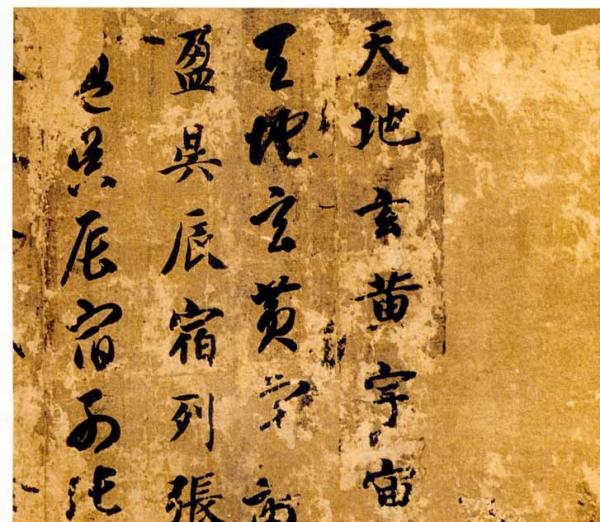 天地玄黄宇宙
天地玄黄宇宙
盈昃辰宿列張
昃辰宿列張